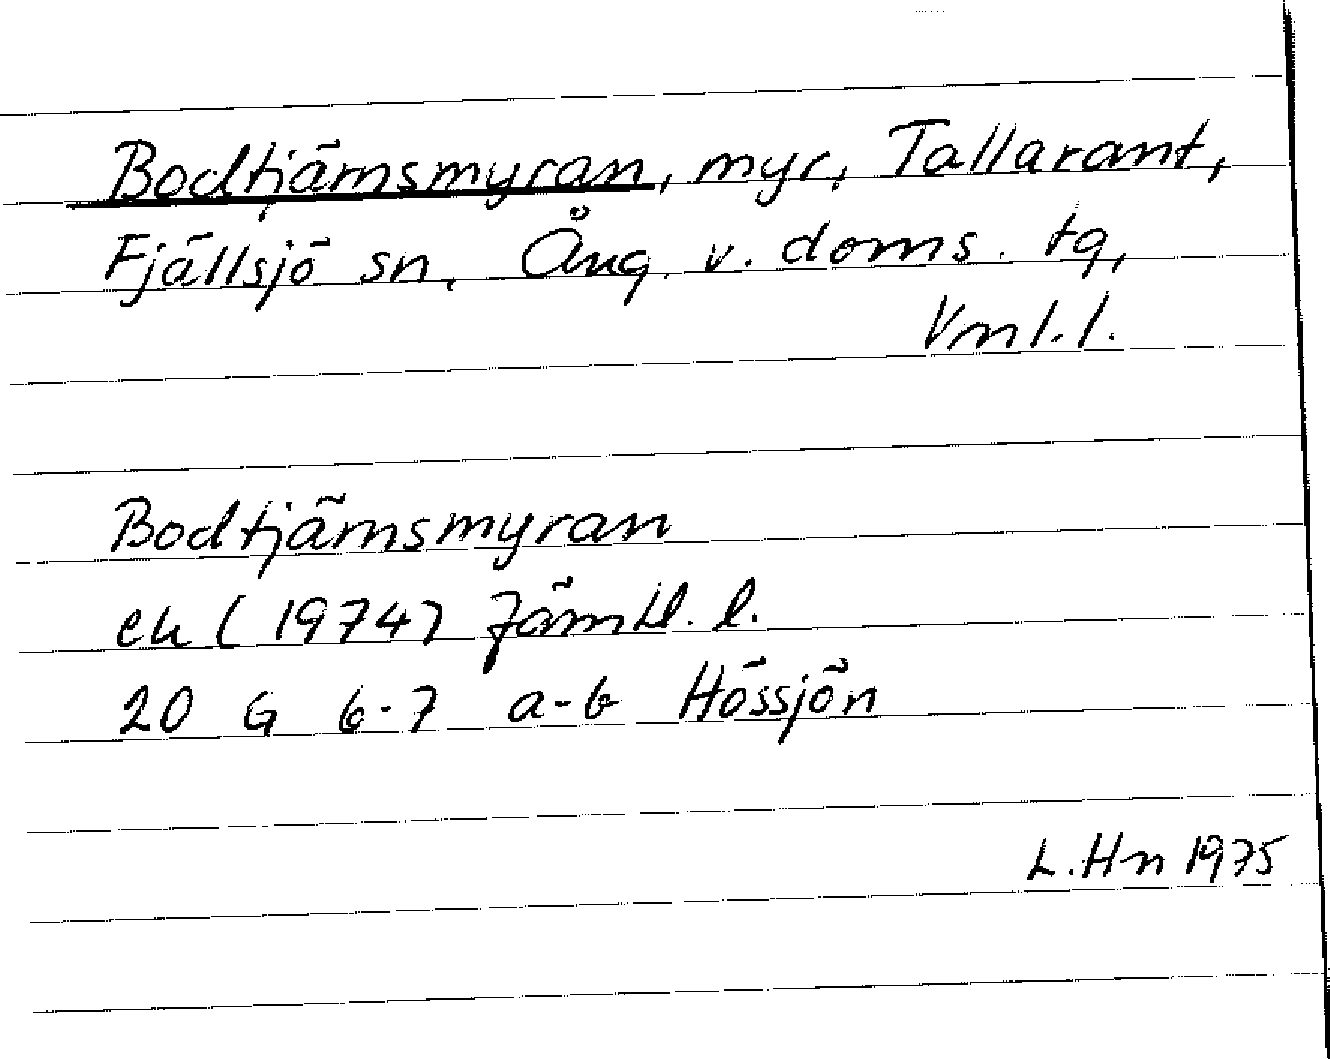 Bodtjärnsmyran, myr, Tallarant,
Fjällsjö sn, Ång. v. doms. tg,
Vnl. l.
Bodtjärnsmyran
ek (1974) Jämtl. l.
20 G 6-7 a-b Hössjön
L. Hn 1975